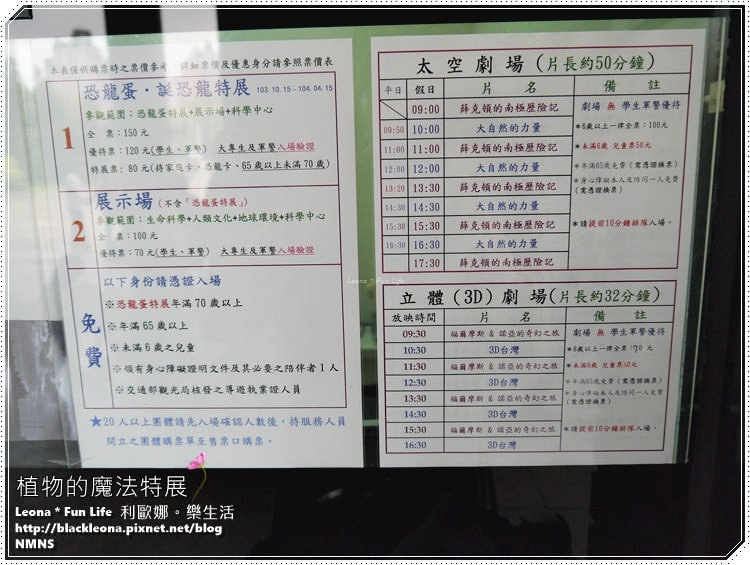 本表僅供購票時之票價參考，詳細票價及優惠身分請參照票價表
1
恐龍蛋・誕恐龍特展 103.10.15－104.04.15
參觀範圍：恐龍蛋特展+展示場+科學中心
全　票：150元
優待票：120元(學生、軍警)　大專生及軍警入場驗證
特展票：80元(持家庭卡、恐龍卡、65歲以上未滿70歲)
2
展示場(不含「恐龍蛋特展」)
參觀範圍：生命科學+人類文化+地球環境+科學中心
全　票：100元
優待票：70元(學生、軍警)　大專生及軍警入場驗證
免費
以下身份請憑證入場
※恐龍蛋特展年滿70歲以上
※年滿65歲以上
※未滿6歲之兒童
※領有身心障礙證明文件及其必要之陪伴者1人
※交通部觀光局核發之導遊執業證人員
★20人以上團體請先入場確認人數後，持服務人員
開立之團體購票單至售票口購票。
太空劇場(片長約50分鐘)
平日 假日 片名 備註
09:00 薛克頓的南極歷險記
09:50 10:00 大自然的力量
11:00 11:00 薛克頓的南極歷險記
12:00 12:00 大自然的力量
13:20 13:30 薛克頓的南極歷險記
14:30 14:30 大自然的力量
15:30 15:30 薛克頓的南極歷險記
16:30 16:30 大自然的力量
17:30 薛克頓的南極歷險記
劇場 無 學生軍警優待
*6歲以上一律全票：100元
*未滿6歲 兒童票50元
*年滿65歲免費(需憑證換票)
*身心障礙本人及陪同一人免費
(需憑證換票)
*請提前10分鐘排隊入場。
立體(3D)劇場(片長約32分鐘)
放映時間 片名 備註
09:30 福爾摩斯 & 諾亞的奇幻之旅
10:30 3D台灣
11:30 福爾摩斯 & 諾亞的奇幻之旅
12:30 3D台灣
13:30 福爾摩斯 & 諾亞的奇幻之旅
14:30 3D台灣
15:30 福爾摩斯 & 諾亞的奇幻之旅
16:30 3D台灣
劇場 無 學生軍警優待
*6歲以上一律全票：70 元
*未滿6歲 兒童票30元
*年滿65歲免費(需憑證換票)
*身心障礙本人及陪同一人免費
(需憑證換票)
*請提前10分鐘排隊入場。
Leona * Fun Life
植物的魔法特展
Leona * Fun Life 利歐娜。樂生活
http://blackleona.pixnet.net/blog
NMNS